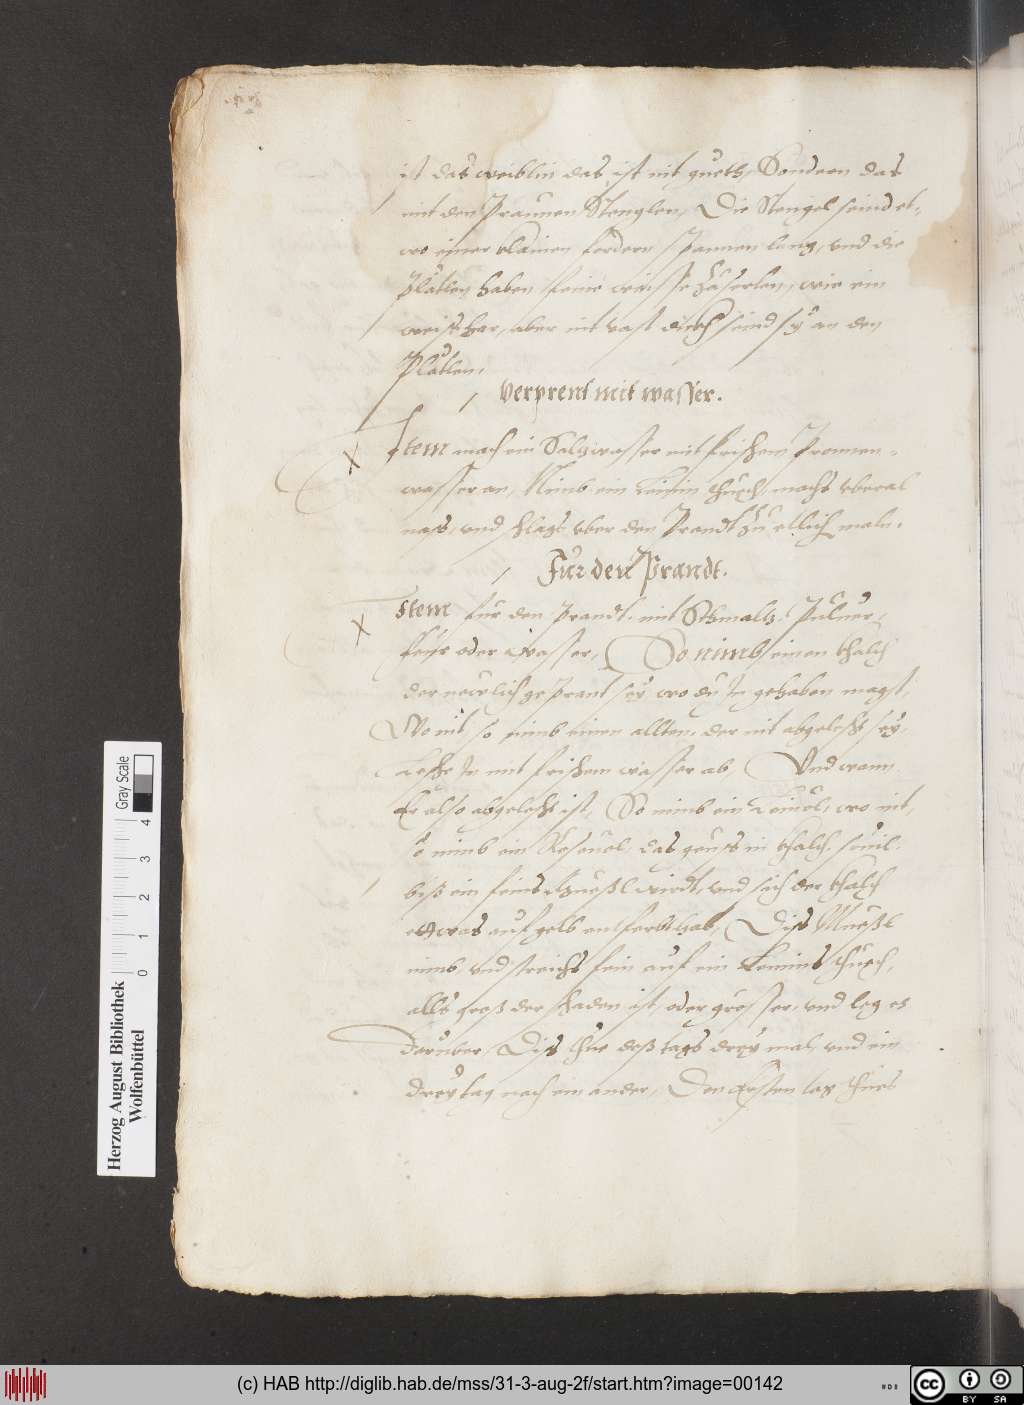 ist das weiblin das ist nit gueth, Sondern das
mit den Praunen Stenglen, Die Stengel seind et-
wo einer klainen fordern spannen lang, und die
Pläˀtlen haben feine weisse zäserlen, wie ein
weiß har, aber nit vast dickh seind sÿ an den
Plätlen,
verprent mit wasser.
Item mach ein Saltzwasser mit frischem Pronnen-
wasser an, Nimb ein Leinin thuech, machs vberal
nass, und schlags vber den Prandt zu etlich maln.
Für den Prandt.
Item für den Prandt. mit Schmaltz. Puluer,
feür oder wasser, So nimb einen khalch
der newlich geprant seÿ wo du In gehaben magst,
Wo nit so nimb einen allten, der nit abgelescht seÿ,
Lesche In mit frischem wasser ab, Und wann
Er also abgelescht ist, So nimb ein Leinöl, wo nit,
so nimb ein Rosenöl, das geuß in khalch, souil,
biß ein feins Mueßl wirdt, und sich der khalch
ettwas auf gelb entferbt hab, Diss Mueßl
nimb und streichs fein auf ein Leinins thuech,
alls groß der schaden ist, oder grösser, und leg es
Darüber, Diss thue deß tags dreÿ mal, und ein
dreÿ tag nach ein ander, Den Ersten tag thues
Herzog August Bibliothek
Wolfenbüttel
0 1 2 3 4
Gray Scale
(c) HAB http://diglib.hab.de/mss/31-3-aug-2f/start.htm?image=00142
cc BY SA